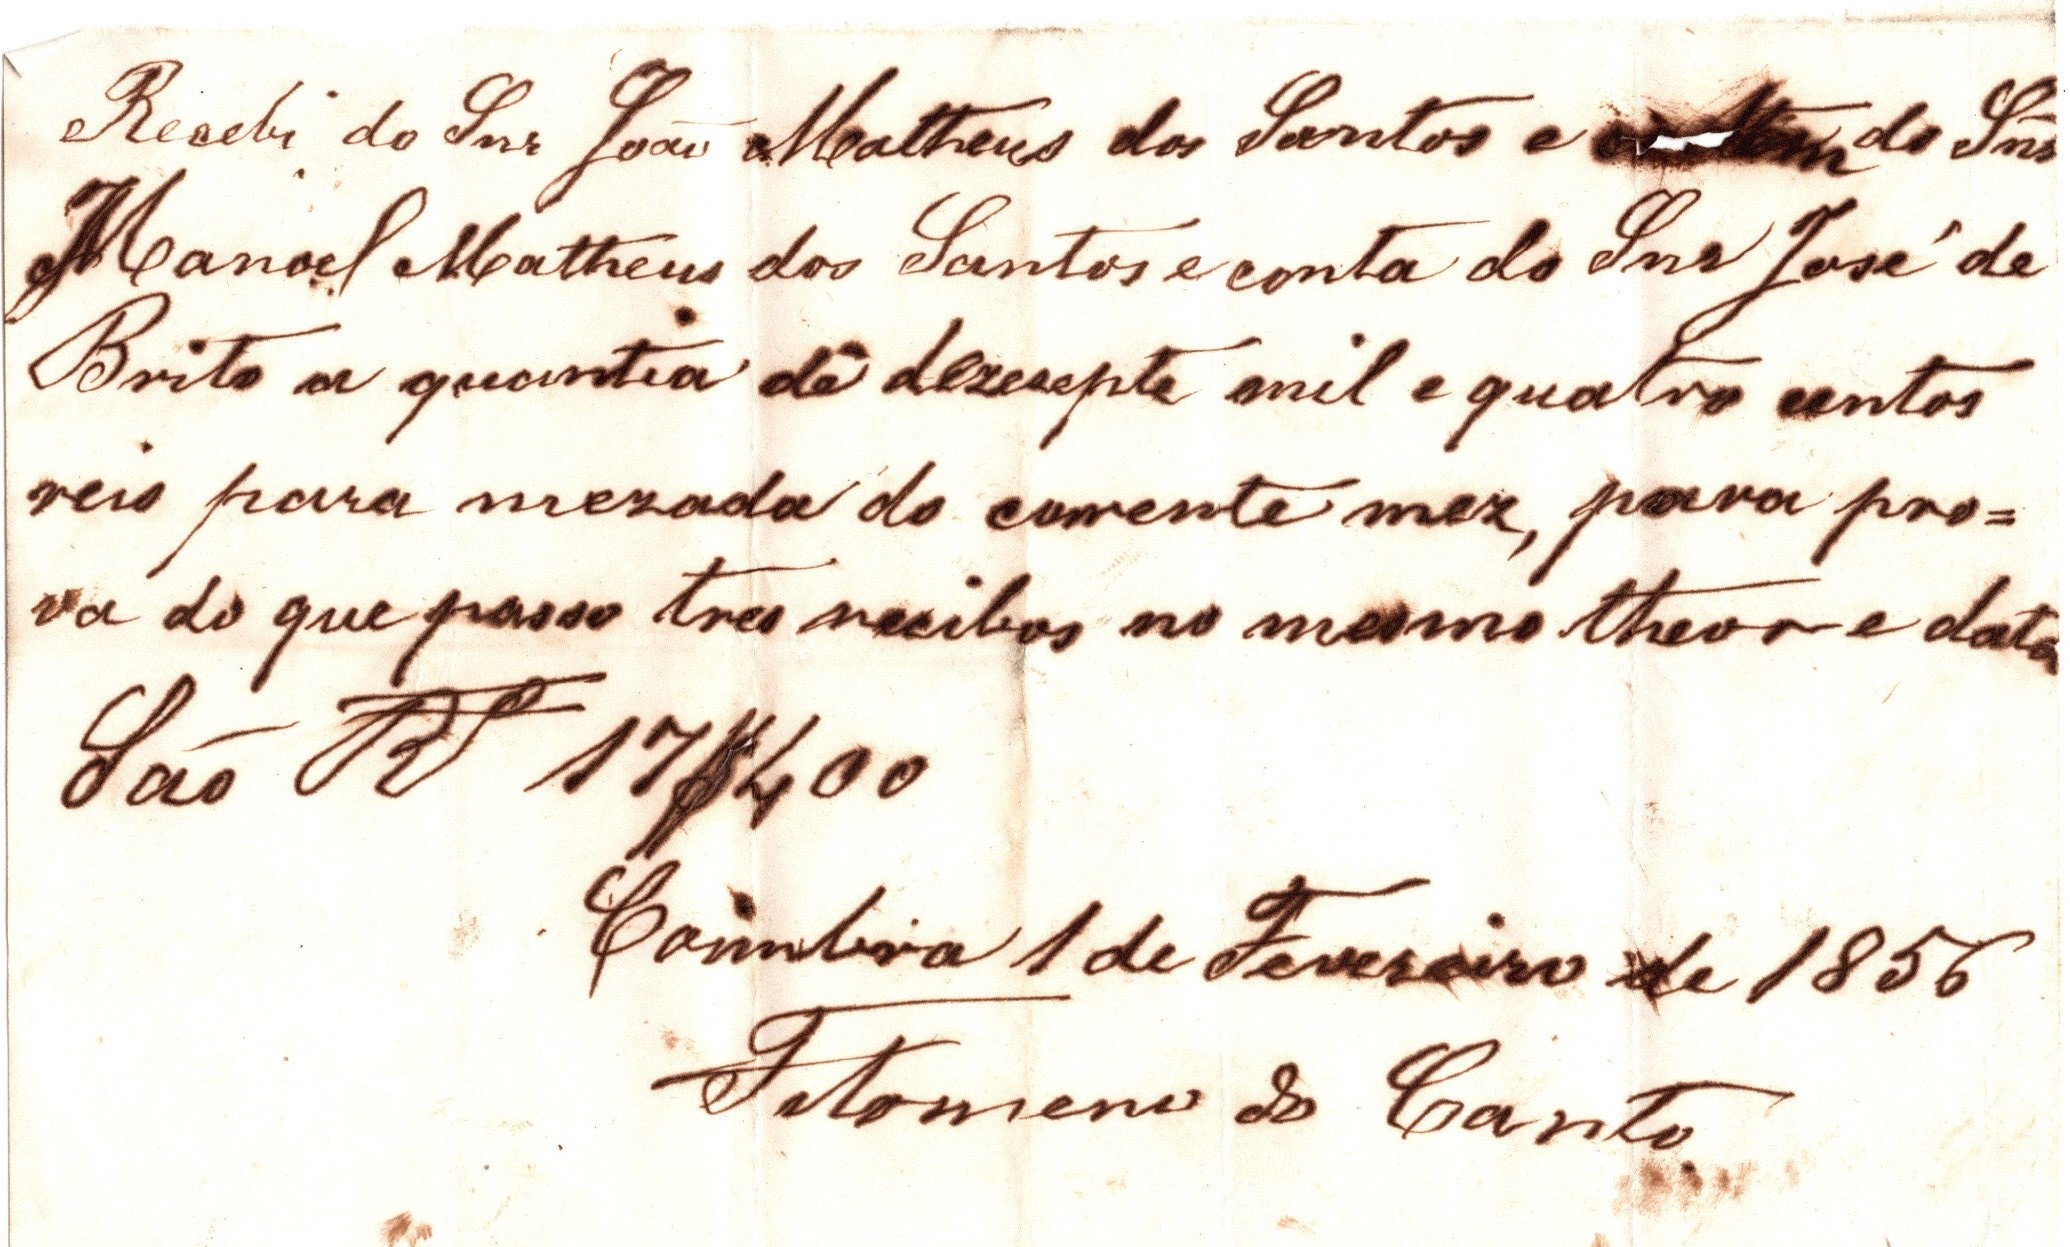 Recebi do Snr João Matheus dos Santos e do Snr
Manoel Matheus dos Santos e conta do Snr José de
Brito a quantia de dezesepte mil e quatro centos
reis para mezada do corrente mez, para pro=
va do que passo tres recibos no mesmo theor e data
São Rs 17$400
Coimbra 1 de Fevereiro de 1856
do Canto